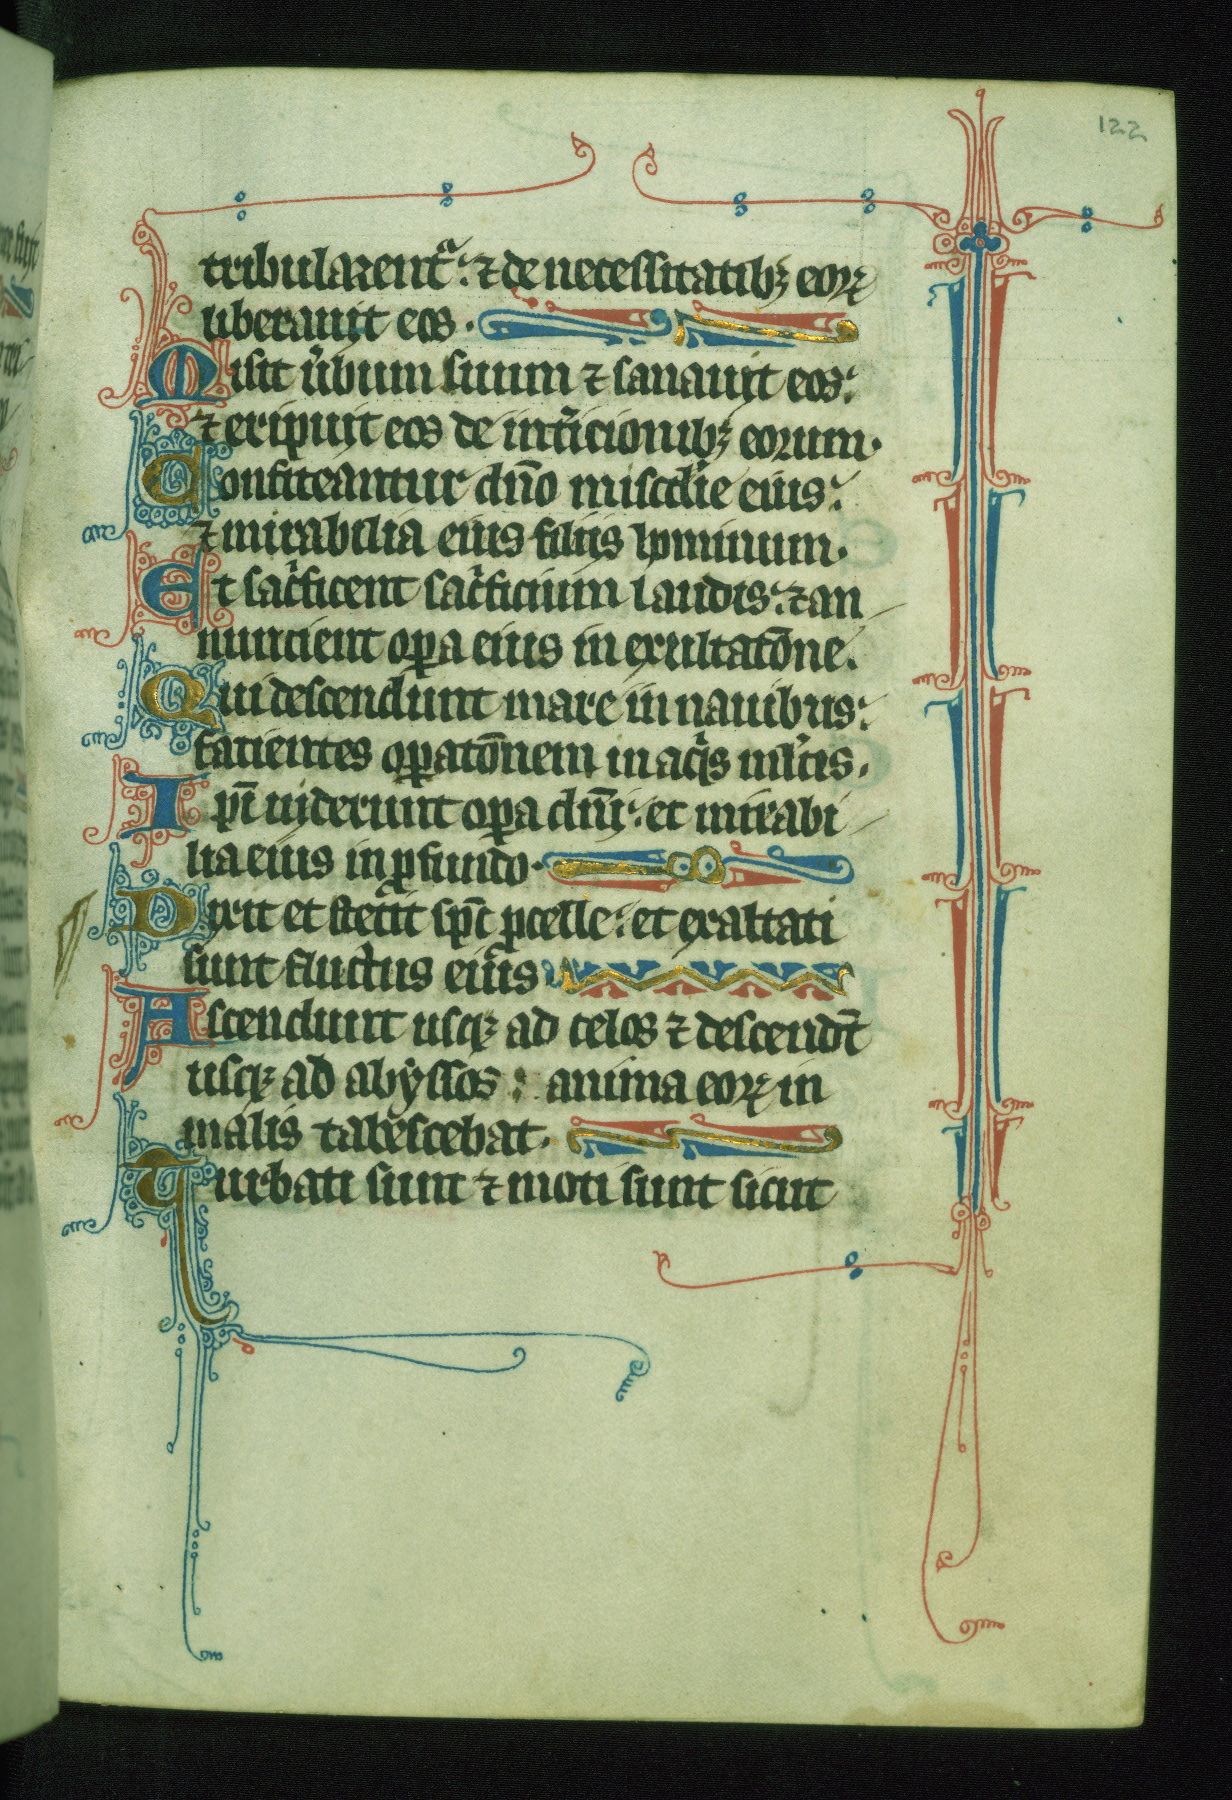 122
tribularent᷑ : ⁊ de necessitatibꝫ eoꝝ
liberauit eos .
Misit ũbum suum ⁊ sanauit eos :
⁊ eripuit eos de int̾icionibꝫ eorum .
Confiteantur dño miscd̾ie eius :
⁊ mirabilia eius filiis hominum .
Et sac̾ficent sac̾ficium laudis : ⁊ an
nuncient oꝑa eius in exultatõne .
Qui descendunt mare in nauibus :
facientes oꝑatõnem in aqͥs mͣtis .
Ip̃i uiderunt oꝑa dñi : et mirabi
lia eius in ꝓfundo .
Dixit et stetit sp̃c ꝓcelle : et exaltati
sunt fluctus eius
Ascendunt usqꝫ ad celos ⁊ descendñt
usqꝫ ad abyssos : anima eoꝝ in
malis tabescebat .
Turbati sunt ⁊ moti sunt sicut